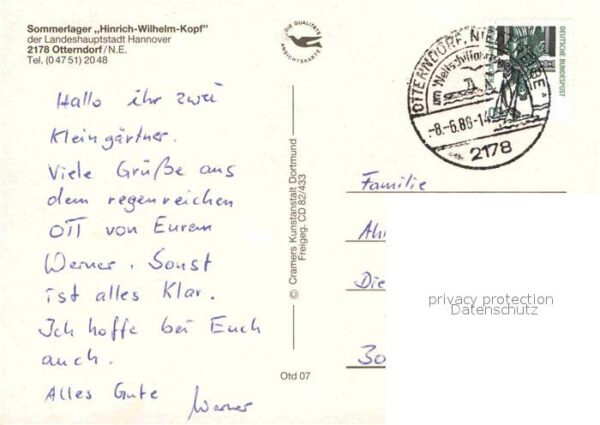 Sommerlager „Hinrich-Wilhelm-Kopf"
der Landeshauptstadt Hannover
2178 Otterndorf/N.E.
Tel. (0 47 51) 20 48
Hallo ihr zwei
Kleingärtner.
Viele Grüße aus
dem regenreichen
OTT von Eurem
Werner. Sonst
ist alles Klar.
Ich hoffe bei Euch
auch.
Alles Gute Werner
DIE QUALITÄTS
ANSICHTSKARTE
© Cramers Kunstanstalt Dortmund
Freigeg. CD 82/433
Otd 07
OTTERNDORF, NIEDERELBE
am Weltschiffahrtsweg
-8.-6.88-14
2178
DEUTSCHE BUNDESPOST
Familie
Ah
Die
30
privacy protection
Datenschutz